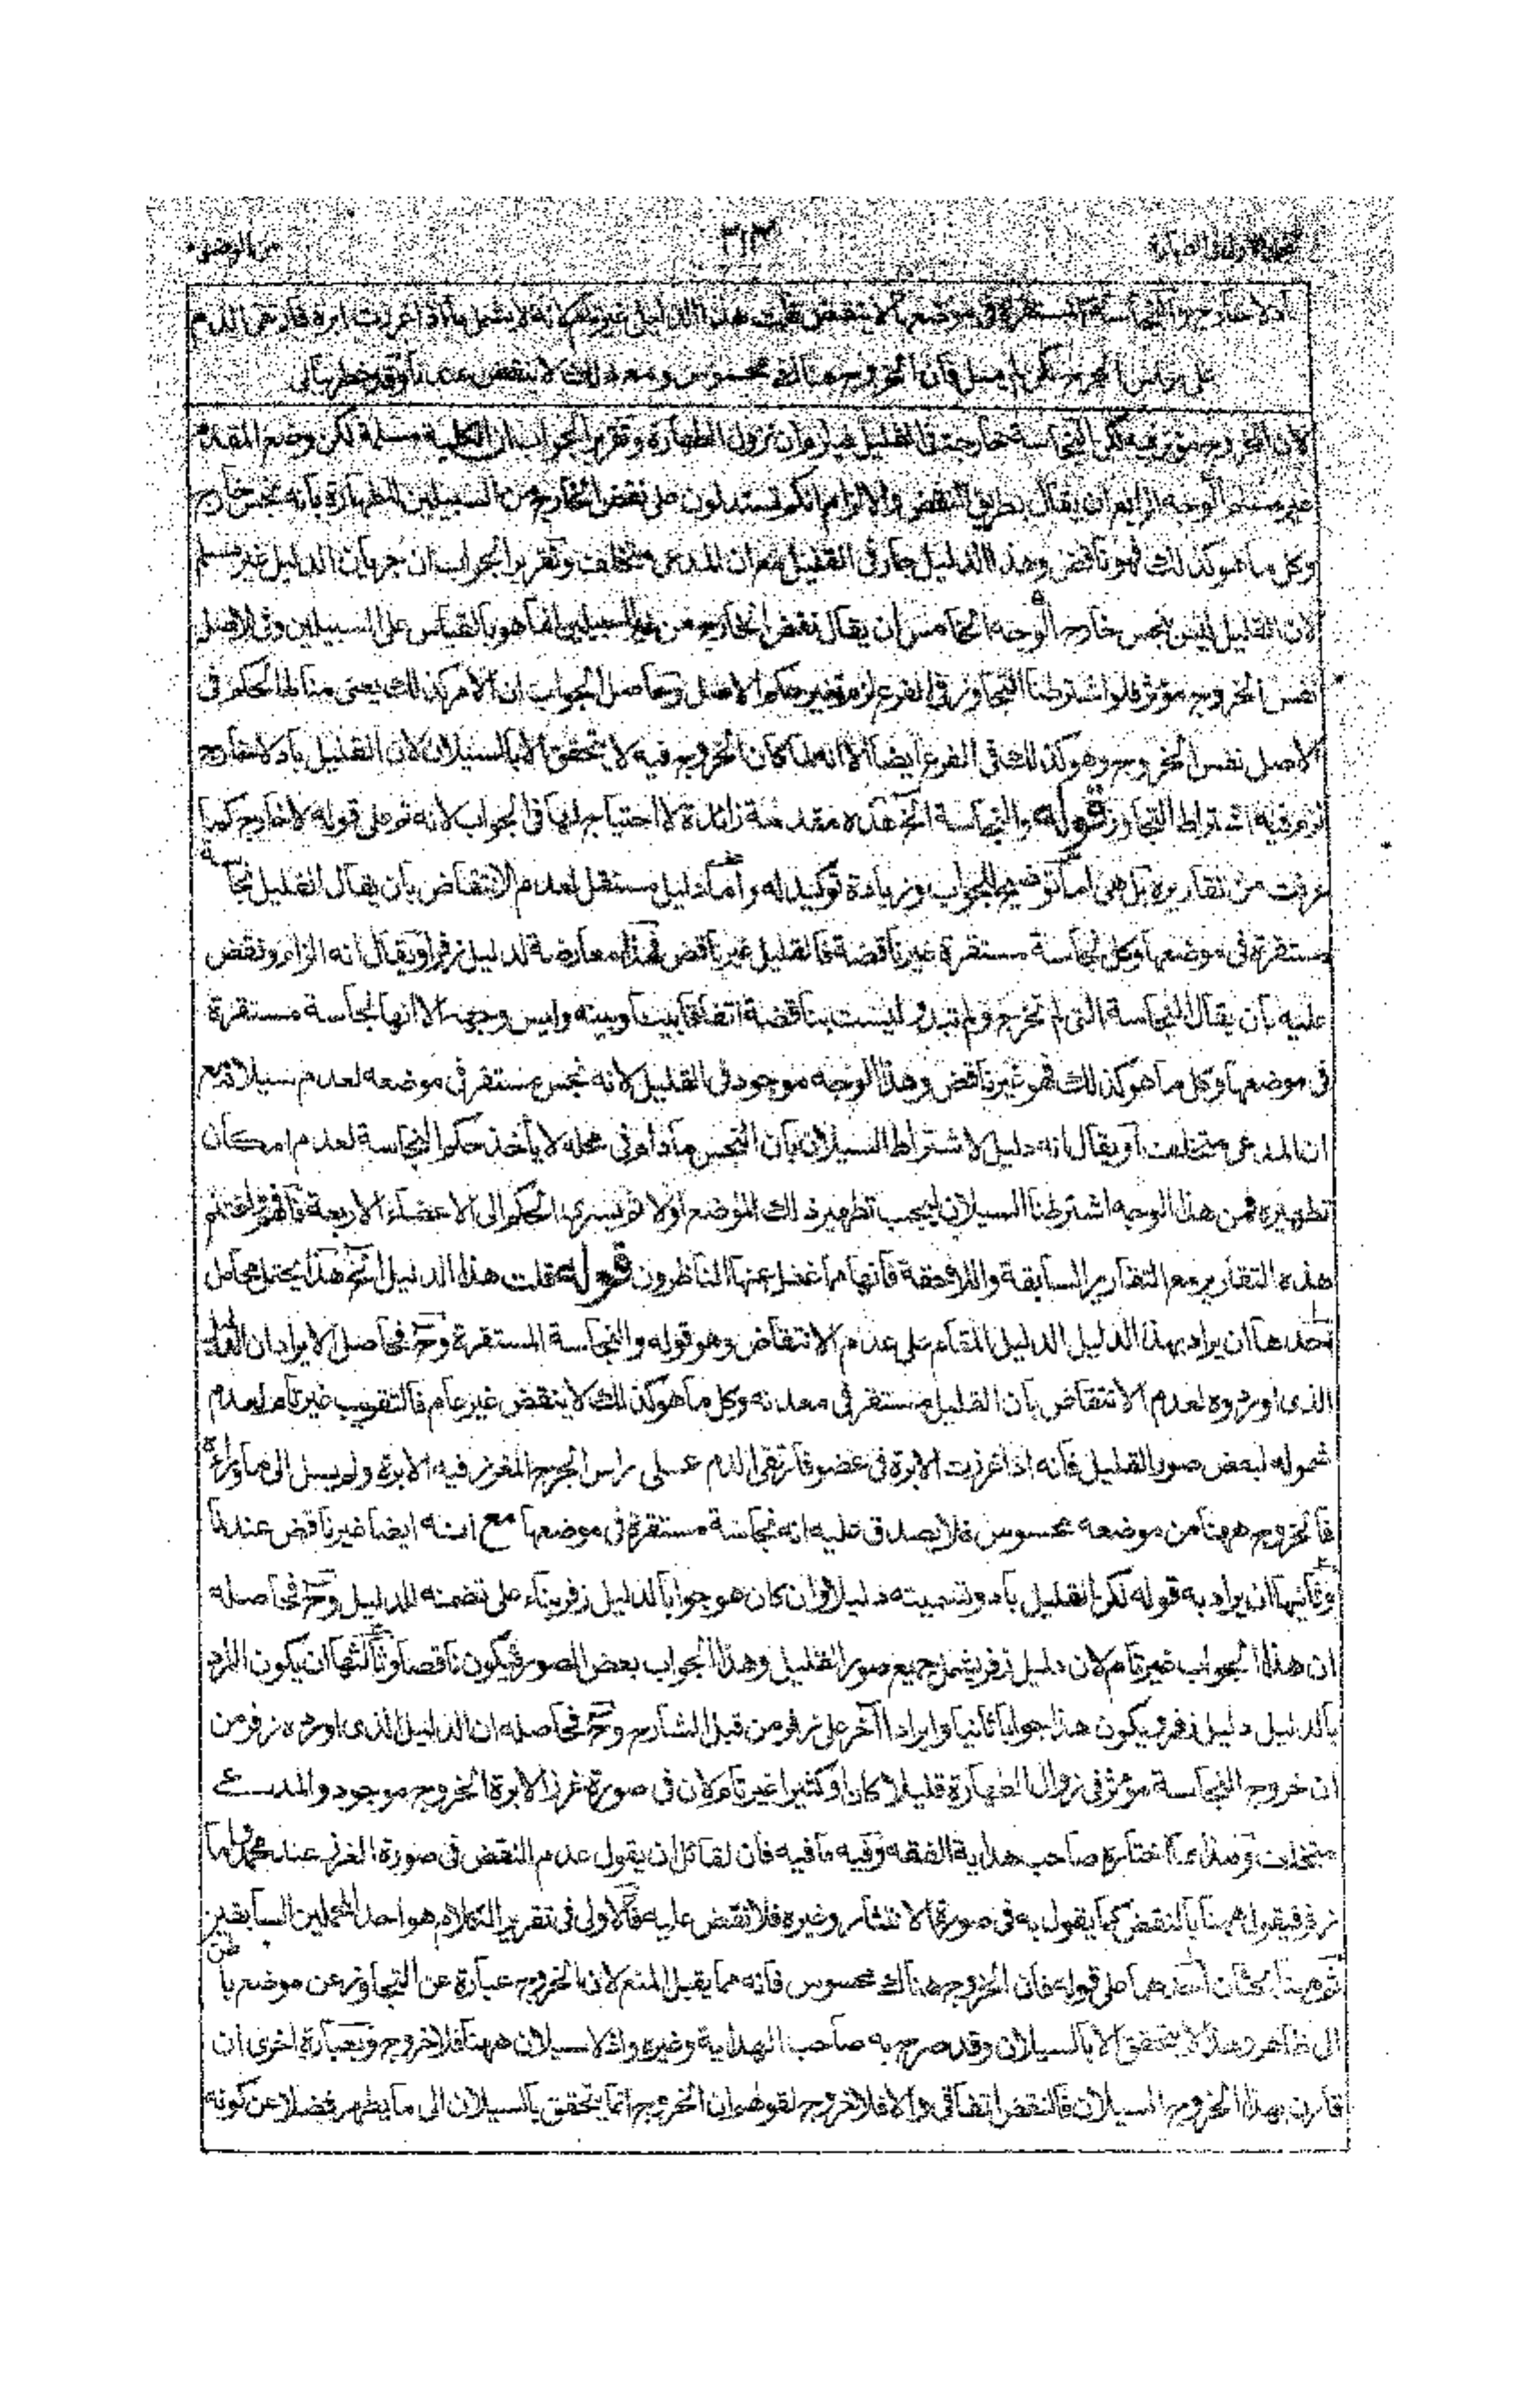 ٣١٣
باد لا خارج والنجاسة المستقرة في موضعها لا تنقض قلت هذا الدليل غير تام لانه لا يشمل ما اذا غرزت ابرة فارتقى الدم
على راس الجرح لكن لم يسل فان الخروج هناك محسوس ومع ذلك لا ينقض عندنا وقد خطر ببالى
لان الخروج مؤثر فيه لكن النجاسة خارجة فى القليل فيلزم ان تزول الطهارة وتقرير الجواب ان الكلية مسلمة لكن وضع المقدم
غير مسلم الوجه الرابع ان يقال بطريق النقض والالزام انكم تستدلون على نقض الخارج من السبيلين الطهارة بانه نجس خارج
وكل ما هو كذلك فهو ناقض وهذا الدليل جار فى القليل مع ان المدعى متخلف وتقرير الجواب ان جريان الدليل غير مسلم
لان القليل ليس بنجس خارج الوجه الخامس ان يقال نقض الخارج من غير السبيلين انما هو بالقياس على السبيلين وفى الاصل
نفس الخروج مؤثر فلو اشترطنا التجاوز فى الفرع لزم تغير حكم الاصل وحاصل الجواب ان الامر كذلك يعنى مناط الحكم فى
الاصل نفس الخروج وهو كذلك فى الفرع ايضا الا انه لما كان الخروج فيه لا يتحقق الا بالسيلان لان القليل باد لا خارج
لزم فيه اشتراط التجاوز قوله والنجاسة الخ هذه مقدمة زائدة لا احتياج لها فى الجواب لانه تم على قوله لا خارج كما
عرفت من تقاريره بل هى اما توضيح للجواب وزيادة توكيد له واما دليل مستقل لعدم الانتقاض بان يقال القليل نجاسة
مستقرة فى موضعها وكل نجاسة مستقرة غير ناقضة فالقليل غير ناقض فهذا معارضة لدليل زفر او يقال انه الزام ونقض
عليه بان يقال النجاسة التى لم تخرج ولم تبدو ليست بناقضة اتفاقا بيننا وبينه وليس وجهه الا انها نجاسة مستقرة
فى موضعها وكل ما هو كذلك فهو غير ناقض وهذا الوجه موجود فى القليل لانه نجس مستقر فى موضعه لعدم سيلانه مع
ان المدعى متخلف او يقال انه دليل لاشتراط السيلان بان النجس ما دام فى محله لا يأخذ حكم النجاسة لعدم امكان
تطهيره فمن هذا الوجه اشترطنا السيلان ليجب تطهير ذلك الموضع اولا ثم يسرى الحكم الى الاعضاء الاربعة فافهم واغتنم
هذه التقارير مع التقارير السابقة واللاحقة فانها مما غفل عنها الناظرون قوله قلت هذا الدليل الخ هذا يحتمل محامل
احدها ان يراد بهذا الدليل الدليل المقام على عدم الانتقاض وهو قوله والنجاسة المستقرة وح فحاصل الايراد ان الدليل
الذى اوردوه لعدم الانتقاض بان القليل مستقر فى معدنه وكل ما هو كذلك لا ينقض غير عام فالتقريب غير تام لعدم
شموله لبعض صور القليل فانه اذا غرزت الابرة فى عضو فارتقى الدم على راس الجرح المغرز فيه الابرة ولم يسل الى ما وراءه
فالخروج ههنا من موضعه محسوس فلا يصدق عليه انه نجاسة مستقرة فى موضعها مع انه ايضا غير ناقض عندنا
وثانيها ان يراد به قوله لكن القليل باد وتسميته دليلا وان كان هو جوابا لدليل زفر بناء على تضمنه للدليل وح فحاصله
ان هذا الجواب غير تام لان دليل زفر يشمل جميع صور القليل وهذا الجواب بعض الصور فيكون ناقصا وثالثها ان يكون المراد
بالدليل دليل زفر فيكون هذا جوابا ثانيا وايرادا آخر على زفر من قبل الشارح وح فحاصله ان الدليل الذى اورده زفر من
ان خروج النجاسة مؤثر فى زوال الطهارة قليلا كان او كثيرا غير تام لان فى صورة غرز الابرة الخروج موجود والمدعى
متخلف وهذا مما اختاره صاحب هداية الفقه وفيه ما فيه فان لقائل ان يقول عدم النقض فى صورة الغرز عند محمد اما
زفر فيقول ههنا بالنقض كما يقول به فى صورة الانتشار وغيره فلا نقض عليه فالاولى فى تقرير الكلام هو احد المحملين السابقين
ثم ههنا بحثان احدهما على قوله فان الخروج هناك محسوس فانه مما يقبل المنع لان الخروج عبارة عن التجاوز عن موضع باطن
الى ظاهر وهذا لا يتحقق الا بالسيلان وقد صرح به صاحب الهداية وغيره واذ لا سيلان ههنا فلا خروج وبعبارة اخرى ان
قارن بهذا الخروج السيلان فالنقض اتفاقى والا فلا خروج لقولهم ان الخروج انما يتحقق بالسيلان الى ما يطهر فضلا عن كونه